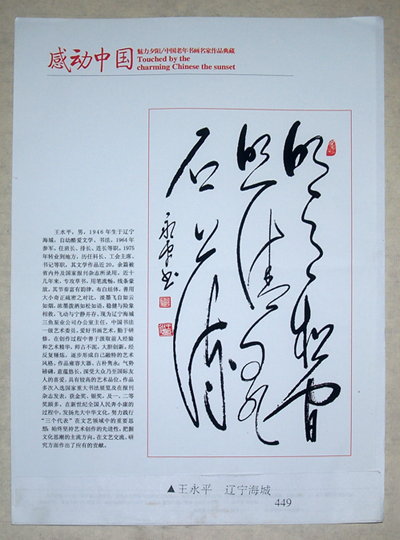 感动中国
魅力夕阳/中国老年书画名家作品典藏
Touched by the
charming Chinese the sunset
明月松間
照清泉
石上流
永平书
王永平，男，1948年生于辽宁
海城，自幼酷爱文学、书法。1964年
参军，任班长、排长、连长等职，1975
年转业到地方，历任科长、工会主席、
书记等职，其文学作品近20，余篇被
省内外及国家报刊杂志所录用。近十
几年来，专攻草书，用笔流畅，线条豪
放，其节奏富有韵律，布白
大小奇正疏密之对比。淡墨飞白如云
如烟，浓墨
相救，飞动与宁静并存。现为辽宁海城
三鱼泵业公司办公室主任，中国书法
一级艺术委员，爱好书画艺术，勤于研
修，在创作过程中善于汲取前人经验
和艺术精华，师古不泥，大胆创新，经
反复锤炼，逐步形成自己融特的艺术
风格，作品雍容大器、古朴隽永，气势
磅礴，意蕴悠长，深受大众乃至国际友
人的喜爱，具有较高的艺术品位，作品
多次入选国家重大书法展览及在报刊
杂志发表，获金奖、银奖、及一、二等
奖颇多。在新世纪全国人民奔小康的
过程中，发扬光大中华文化，努力践行
“三个代表”在文艺领域中的重要思
想，始终坚持艺术创作的先进性，把握
文化思潮的主流方向，在文艺交流、研
究方面作出了应有的贡献。
▲王永平 辽宁海城
449